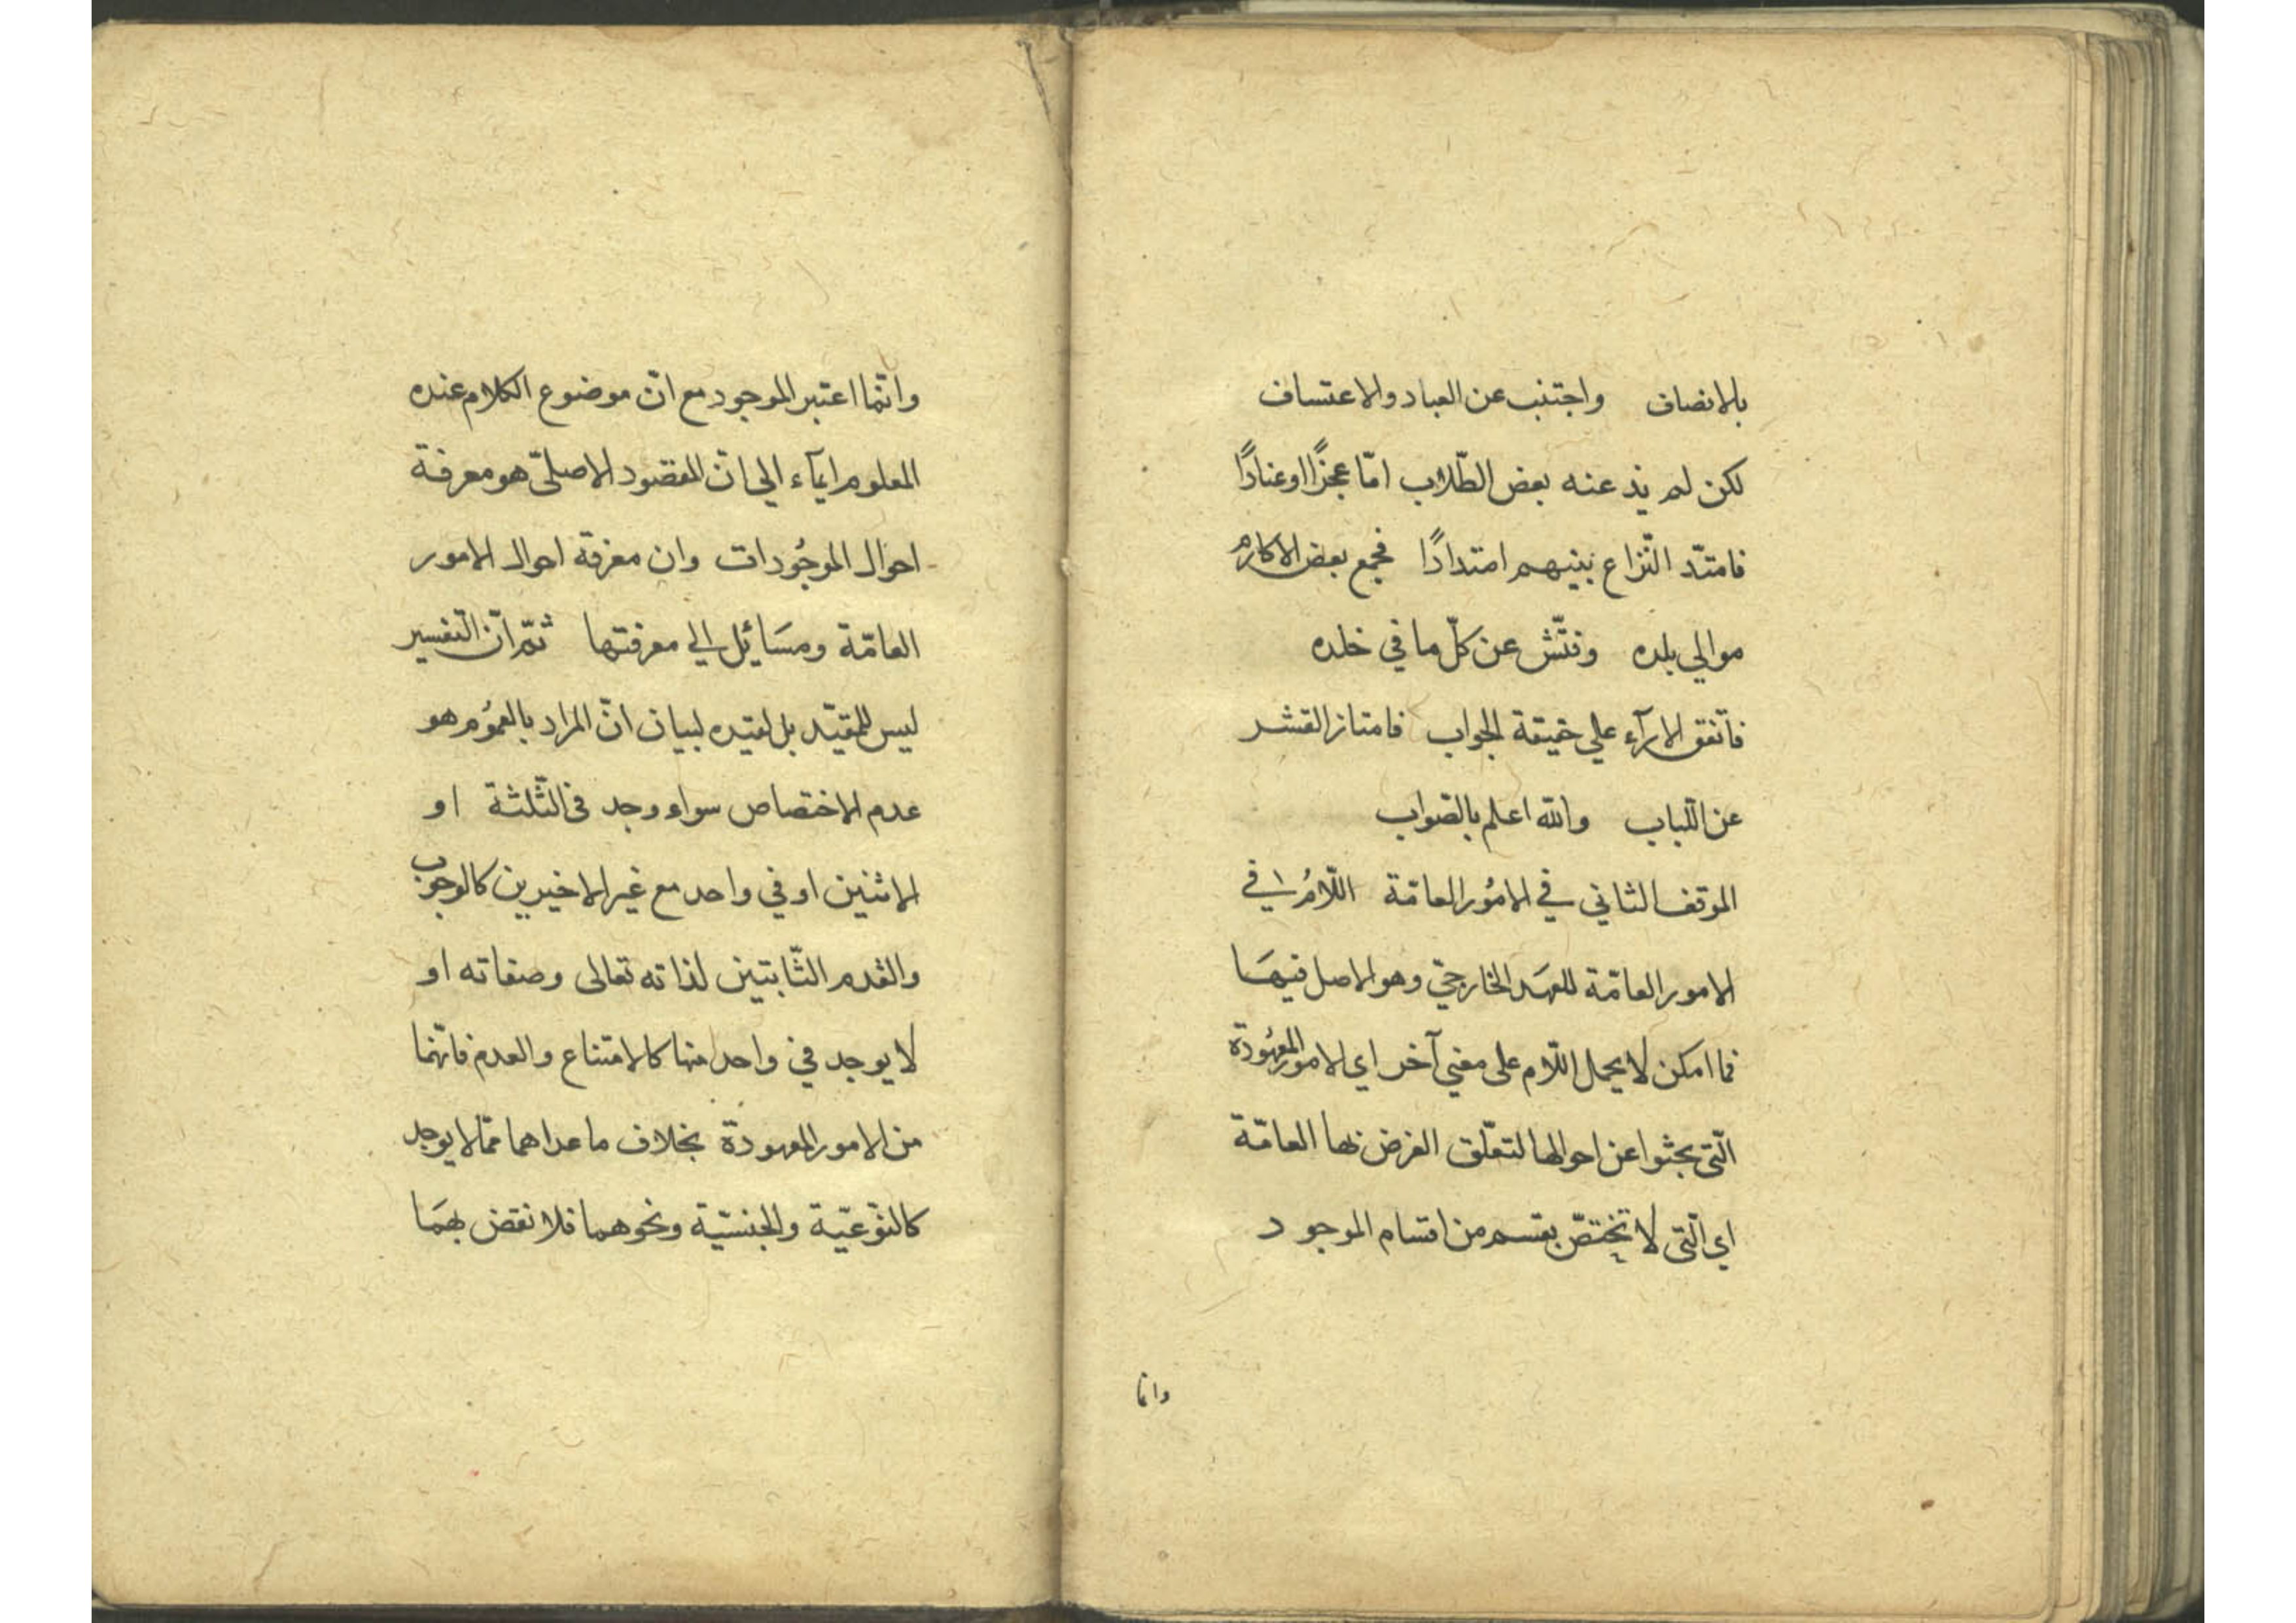 بالانصاف واجتنب عن العباد والاعتساف
لكن لم يذعنه بعض الطّلاب امّا عجزًا اوعنادًا
فامتدّ النّزاع بينهم امتدادًا فجمع بعض الاكارم
موالي بلده وفتّش عن كلّ ما في خلده
فاتّفق الارآء علي حقيقة الجواب فامتاز القشر
عن اللّباب والله اعلم بالصّواب
الموقف الثاني في الامُور العامّة اللّامُ في
الامور العامّة للعهَد الخارجيّ وهو الاصل فيهَا
فما امكن لا يحمل اللّام على معني آخر اي الامور المعهُودة
الّتي بحثوا عن احوالها لتعلّق الغرض بها العامّة
اي الّتي لا تختصّ بقسم من اقسام الموجود
وانما
وانّما اعتبر الموجود مع انّ موضوع الكلام عنده
المعلوم ايمآء الي انّ المقصُود الاصليّ هو معرفة
احوال الموجُودات وان معرفة احوال الامور
العامّة ومسَايُل الي معرفتها ثمّ انّ التفسير
ليس للمقيّد بل لقيده لبيان انّ المراد بالعمُوم هو
عدم الاختصاص سواء وجد في الثّلثة او
الاثنين او في واحد مع غير الاخيرين كالوجوب
والقدم الثّابتين لذاته تعالى وصفاته او
لا يوجد في واحد منها كالامتناع والعدم فانّهما
من الامور المعهودة بخلاف ما عداهما ممّا لا يوجد
كالنّوعيّة والجنسيّة ونحوهما فلا نقض بهمَا